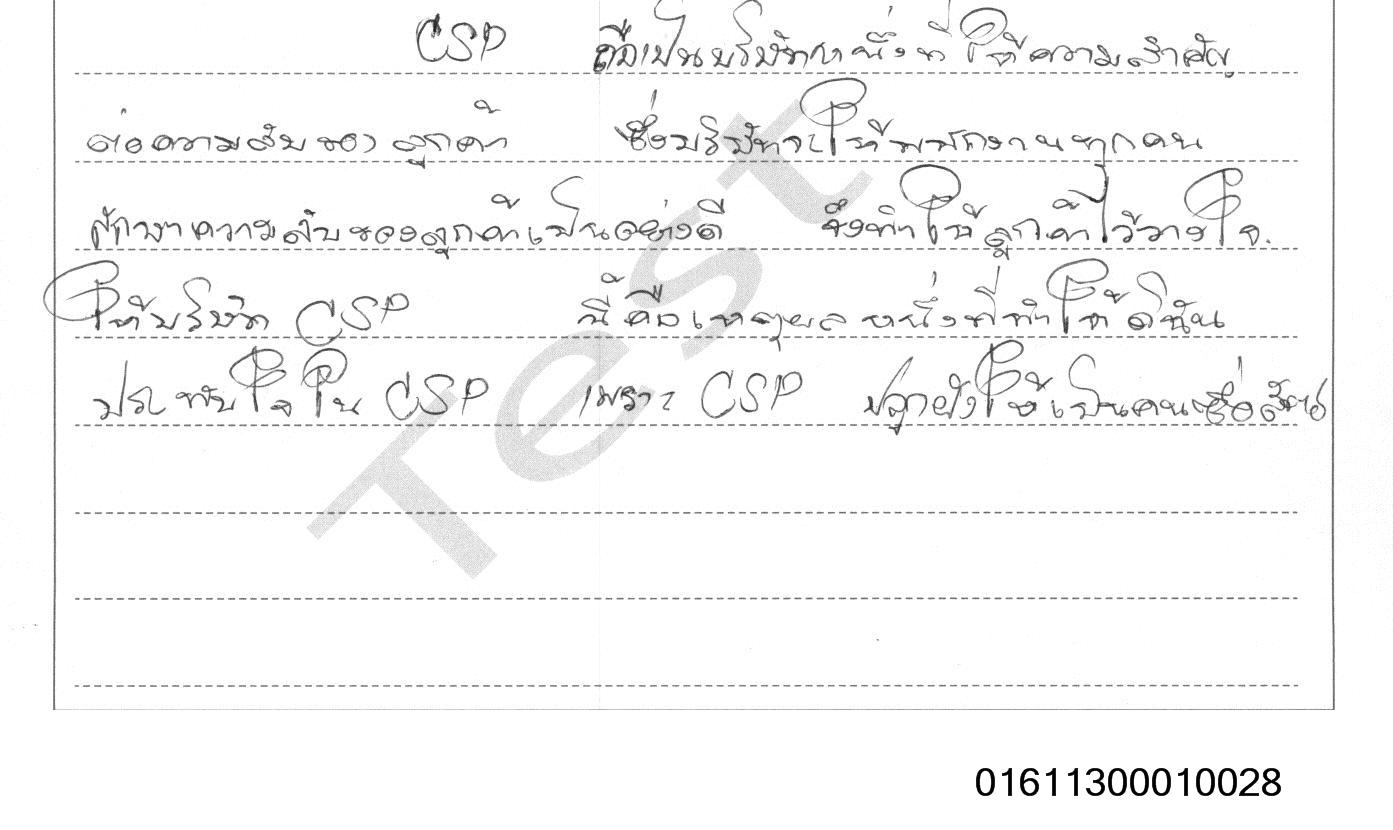 CSP ถือเป็นบริษัทหนึ่งที่ให้ความสำคัญ
ต่อความลับของลูกค้า ซึ่งบริษัทจะให้พนักงานทุกคน
รักษาความลับของลูกค้าเป็นอย่างดี จึงทำให้ลูกค้าไว้วางใจ
ให้บริษัท CSP นี้คือเหตุผลหนึ่งที่ทำให้ดิฉัน
ประทับใจใน CSP เพราะ CSP ปลูกฝังให้เป็นคนซื่อสัตย์
Test
01611300010028